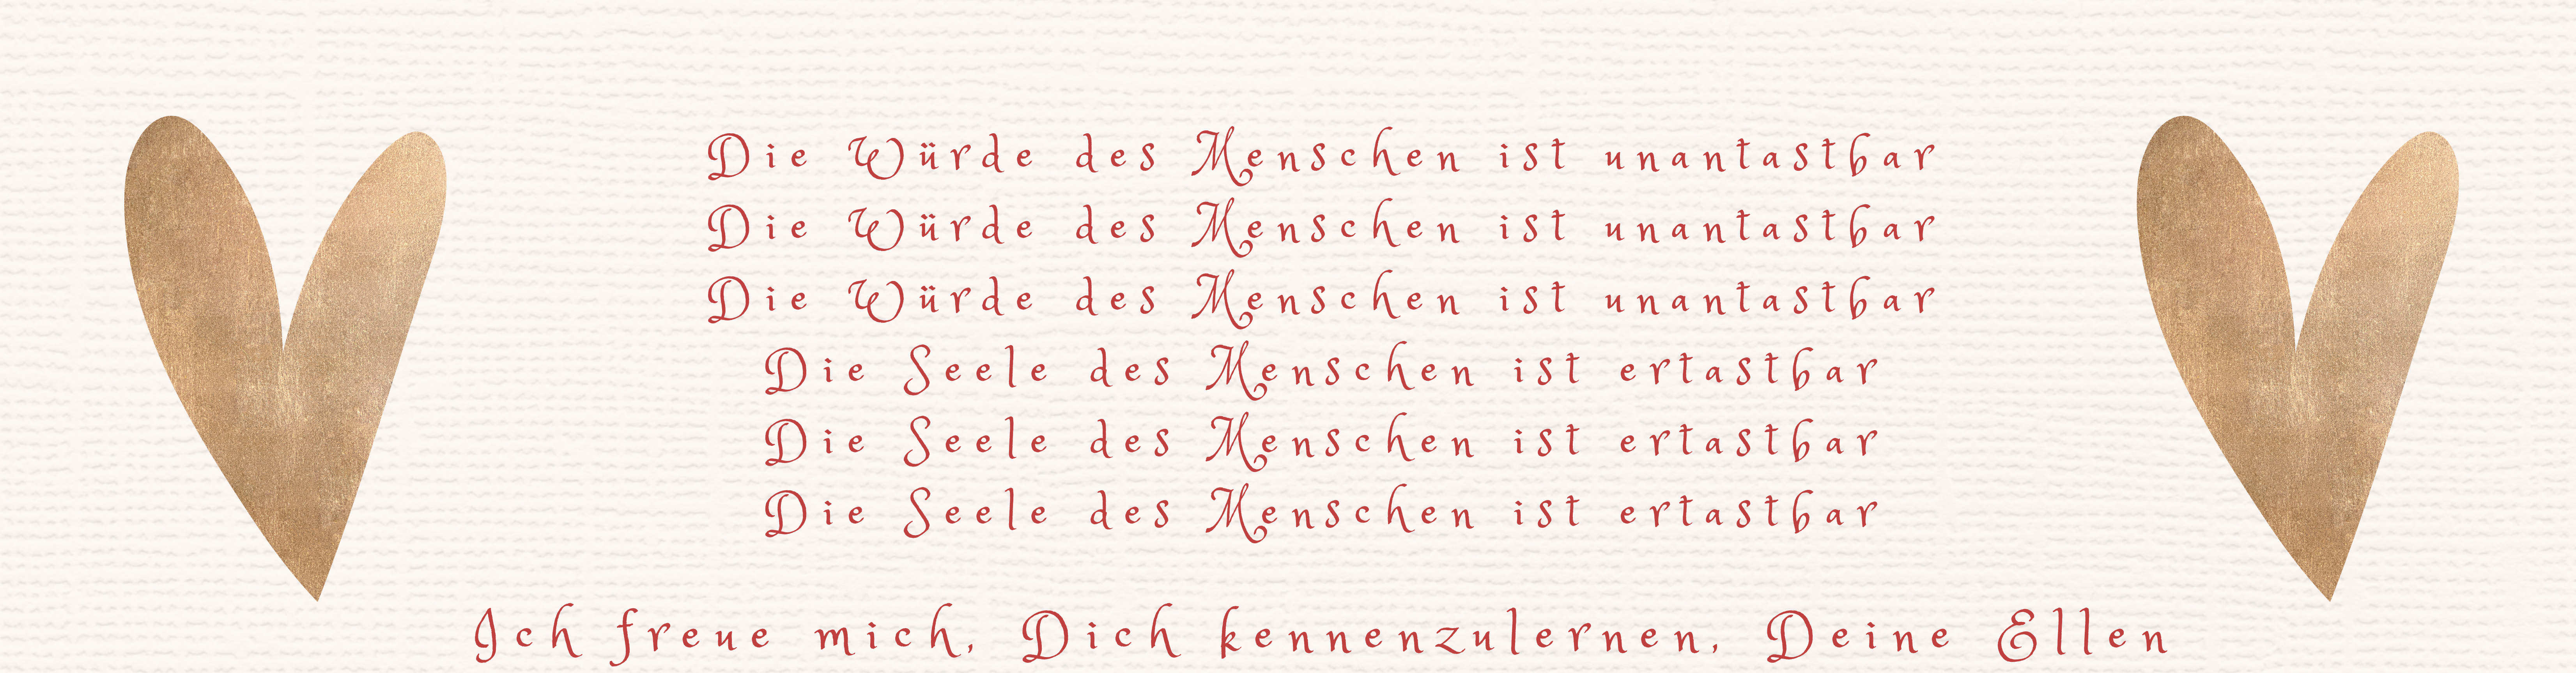 Die Würde des Menschen ist unantastbar
Die Würde des Menschen ist unantastbar
Die Würde des Menschen ist unantastbar
Die Seele des Menschen ist ertastbar
Die Seele des Menschen ist ertastbar
Die Seele des Menschen ist ertastbar
Ich freue mich, Dich kennenzulernen, Deine Ellen